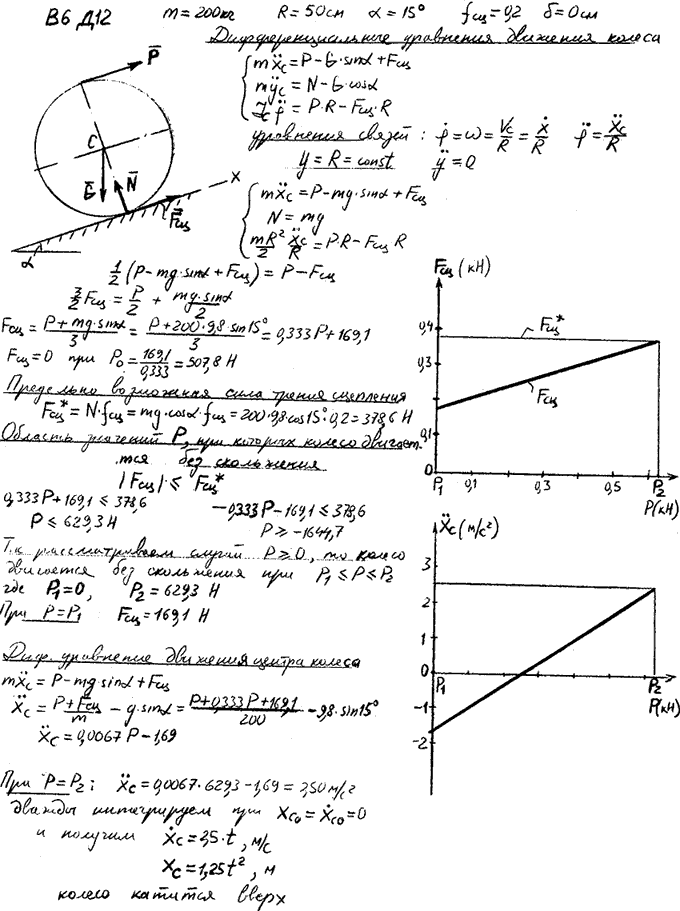 В6 Д12 m = 200кг R = 50см α = 15° fсц = 0,2 δ = 0см
Дифференциальные уравнения движения колеса
P
C
G
N
Fсц
x
α
mẍc = P - G·sinα + Fсц
mÿc = N - G·cosα
φ̈ = P·R - Fсц·R
уравнения связей: φ̇ = ω = Vc/R = ẋ/R φ̈ = ẍc/R
y = R = const ÿ = 0
mẍc = P - mg·sinα + Fсц
N = mg
mR²/2 ẍc/R = P·R - Fсц R
1/2 (P - mg·sinα + Fсц) = P - Fсц
3/2 Fсц = P/2 + mg·sinα/2
Fсц = P + mg·sinα/3 = P + 200·9,8·sin15°/3 = 0,333P + 169,1
Fсц = 0 при P₀ = 169,1/0,333 = 507,8 Н
Предельно возможная сила трения сцепления
Fсц* = N·fсц = mg·cosα·fсц = 200·9,8·cos15°·0,2 = 378,6 Н
Область значений P, при которых колесо двигает-
тся без скольжения
|Fсц| ≤ Fсц*
0,333P + 169,1 ≤ 378,6 -0,333P - 169,1 ≤ 378,6
P ≤ 629,3 Н P ≥ -1644,7
Т.к рассматриваем случай P ≥ 0, то колесо
двигается без скольжения при P₁ ≤ P ≤ P₂
где P₁ = 0, P₂ = 629,3 Н
При P = P₁ Fсц = 169,1 Н
Диф. уравнение движения центра колеса
mẍc = P - mg·sinα + Fсц
ẍc = P + Fсц/m - g·sinα = P + 0,333P + 169,1/200 - 9,8·sin15°
ẍc = 0,0067P - 1,69
При P = P₂: ẍc = 0,0067·629,3 - 1,69 = 2,50 м/с²
дважды интегрируем при xc₀ = ẋc₀ = 0
и получим ẋc = 2,5·t, м/с
xc = 1,25t², м
колесо катится вверх
Fсц (кН)
0,4
Fсц*
0,3
Fсц
0,1
0
P₁ 0,1 0,3 0,5 P₂
P(кН)
ẍc (м/с²)
3
2
1
0
P₁ P₂
P(кН)
-1
-2